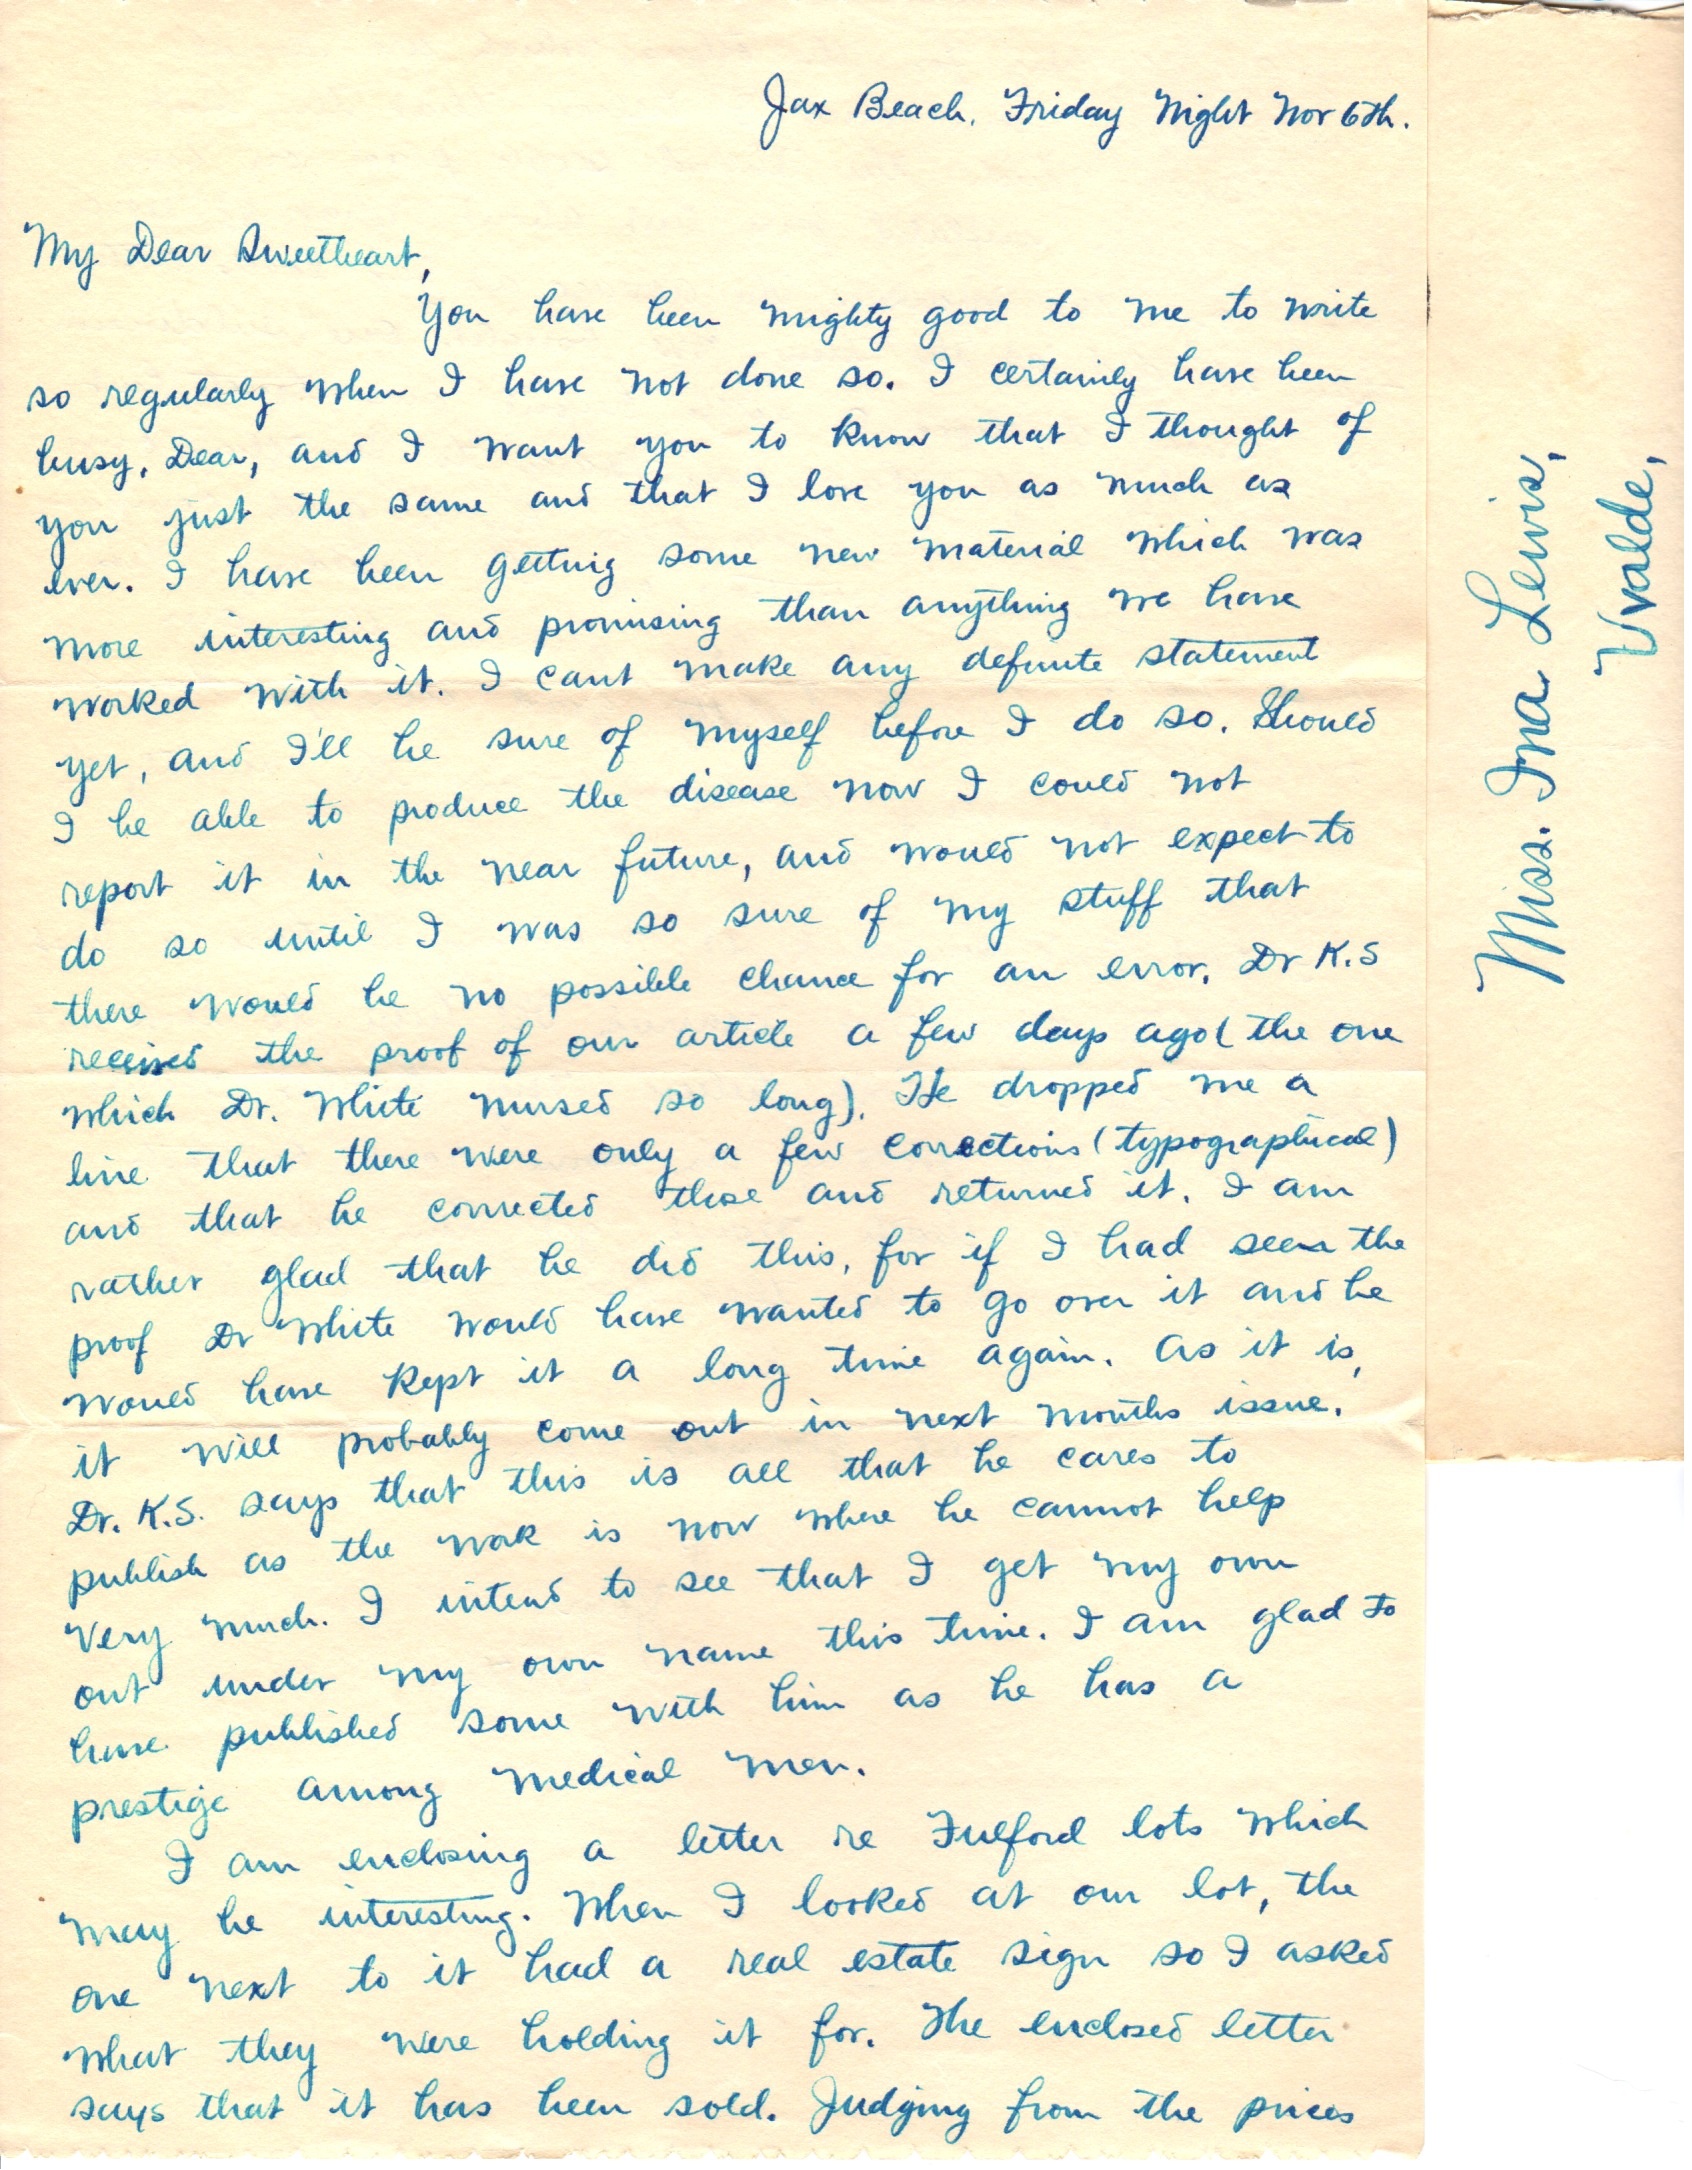 Jax Beach, Friday Night Nov 6th.
My Dear Sweetheart,
You have been mighty good to me to write
so regularly when I have not done so. I certainly have been
busy, Dear, and I want you to know that I thought of
you just the same and that I love you as much as
ever. I have been getting some new material which was
more interesting and promising than anything we have
worked with it. I cant make any definite statement
yet, and I'll be sure of myself before I do so. Should
I be able to produce the disease now I could not
report it in the near future, and would not expect to
do so until I was so sure of my stuff that
there would be no possible chance for an error. Dr K.S
received the proof of our article a few days ago (the one
which Dr. White nursed so long). He dropped me a
line that there were only a few corrections (typographical)
and that he corrected these and returned it. I am
rather glad that he did this, for if I had seen the
proof Dr White would have wanted to go over it and he
would have kept it a long time again. As it is,
it will probably come out in next months issue.
Dr. K.S. says that this is all that he cares to
publish as the work is now where he cannot help
very much. I intend to see that I get my own
out under my own name this time. I am glad to
have published some with him as he has a
prestige among medical men.
I am enclosing a letter re Fulford lots which
may be interesting. When I looked at our lot, the
one next to it had a real estate sign so I asked
what they were holding it for. The enclosed letter
says that it has been sold. Judging from the prices
Miss. Ina Lewis,
Uvalde,